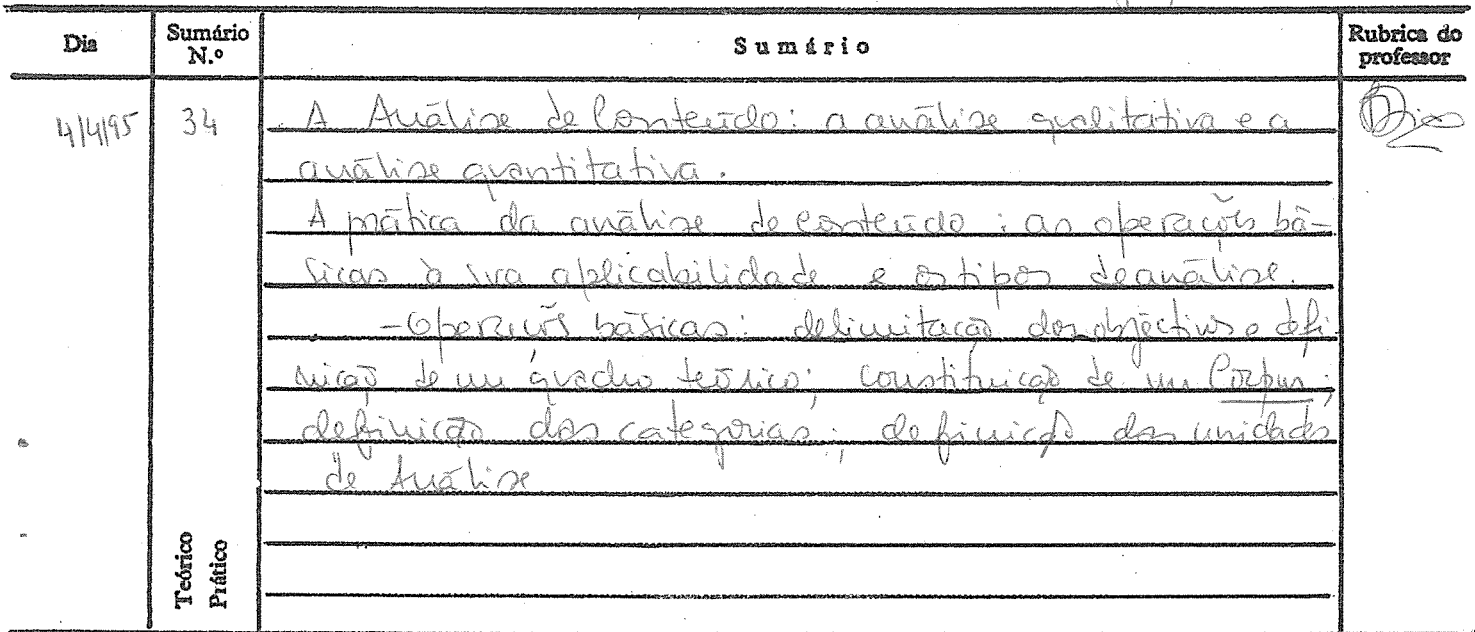 Dia Sumário N.º Sumário Rubrica do professor
4/4/95 34 A Análise de Conteúdo: a análise qualitativa e a
análise quantitativa.
A prática da análise de conteúdo: as operações bá-
sicas à sua aplicabilidade e os tipos de análise.
- Operações básicas: delimitação dos objectivos e defi-
nição de um quadro teórico; constituição de um Corpus;
definição das categorias; definição das unidades
de Análise
Teórico
Prático